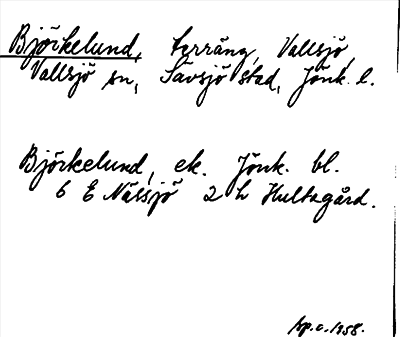 Björkelund, terräng, Vallsjö,
Vallsjö sn, Sävsjö stad, Jönk. l.
Björkelund, ek. Jönk. bl.
6 E Nässjö 2 h Hultagård.
sp.o. 1958.